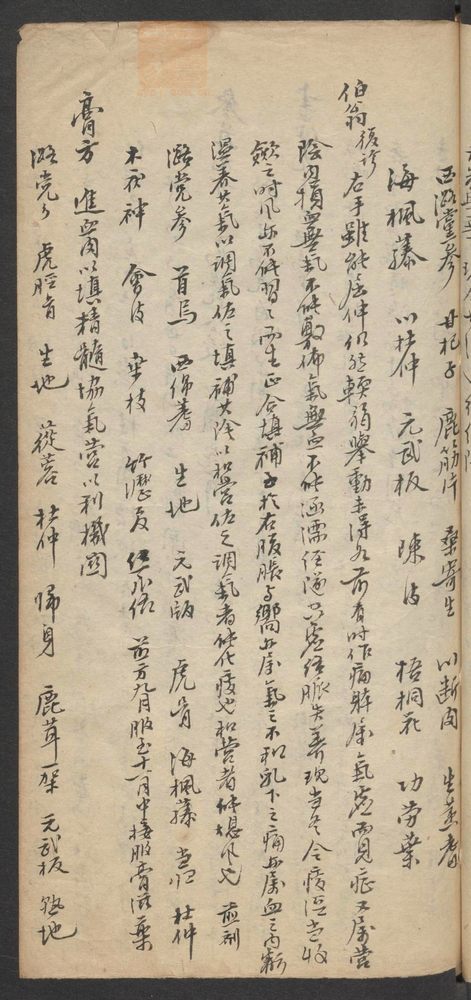 西潞黨參 甘杞子 鹿筋片 桑寄生 川断肉 生黃耆
海楓藤 川杜仲 元武板 陳皮 梧桐花 功勞葉
伯翁 復診 右手雖能屈伸仍然輭弱舉動未得如前有時作痛時屬氣虛而見症又屬營
陰內損血無氣不能敷佈氣無血不能涵濡經隧空虛絡脈失養現當冬令痰溼當收
斂之時風亦不能習習而生正合填補至於右腹脹與響此屬氣之不和乳下之痛此屬血之內虧
溫養其氣以調氣佐之填補其陰以和營佐之調氣者能化痰也和營者能熄風也 煎劑
潞党參 首烏 西綿耆 生地 元武版 虎骨 海楓藤 當归 杜仲
木茯神 會皮 桑枝 竹瀝夏 前方九月服至十一月中接服膏滋藥
膏方 進血肉以填精髓協氣營以利機關
潞党參 虎脛骨 生地 蓯蓉 杜仲 歸身 鹿茸一架 元武板 熟地